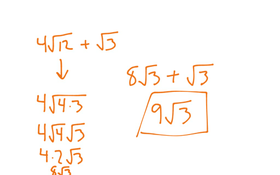 4√12 + √3
↓
4√4·3
4√4√3
4·2√3
8√3
8√3 + √3
9√3